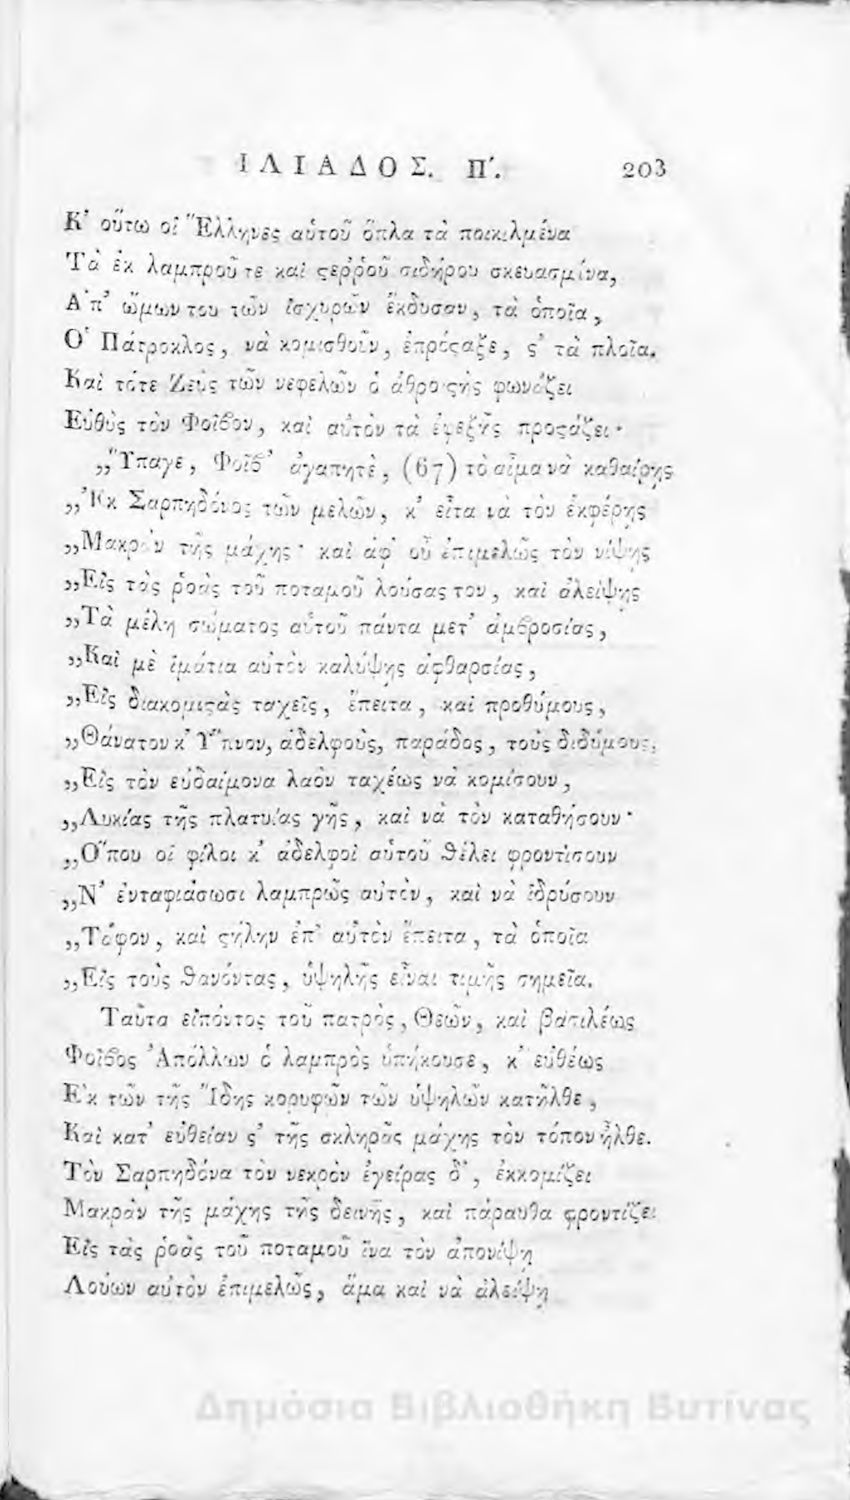 ΙΛΙΑΔΟΣ. Π'. 203
Κ' οὕτω οἱ Ἕλληνες αὑτοῦ ὅπλα τὰ ποικιλμένα
Τὰ ἐκ λαμπροῦ τε καὶ ϛεῤῥοῦ σιδήρου σκευασμένα,
Ἀπ' ὤμων του τῶν ἰσχυρῶν ἔκδυσαν, τὰ ὁποῖα,
Ὁ Πάτροκλος, νὰ κομισθοῦν, ἐπρόϛαξε, ϛ' τὰ πλοῖα.
Καὶ τότε Ζεὺς τῶν νεφελῶν ὁ ἀθροιϛὴς φωνάζει
Εὐθὺς τὸν Φοῖβον, καὶ αὐτὸν τὰ ἐφεξῆς προϛάζει·
„Ὕπαγε, Φοῖβ' ἀγαπητὲ, (67) τὸ αἷμα νὰ καθαίρῃς
„Ἐκ Σαρπηδόνος τῶν μελῶν, κ' εἶτα νὰ τὸν ἐκφέρῃς
„Μακρὰν τῆς μάχης· καὶ ἀφ' οὗ ἐπιμελῶς τὸν νίψῃς
„Εἰς τὰς ῥοὰς τοῦ ποταμοῦ λούσας τον, καὶ ἀλείψῃς
„Τὰ μέλη σώματος αὑτοῦ πάντα μετ' ἀμβροσίας,
„Καὶ μὲ ἱμάτια αὐτὸν καλύψῃς ἀφθαρσίας,
„Εἰς διακομιϛὰς ταχεῖς, ἔπειτα, καὶ προθύμους,
„Θάνατον κ' Ὕπνον, ἀδελφοὺς, παράδος, τοὺς διδύμους,
„Εἰς τὸν εὐδαίμονα λαὸν ταχέως νὰ κομίσουν,
„Λυκίας τῆς πλατυίας γῆς, καὶ νὰ τὸν καταθήσουν·
„Ὅπου οἱ φίλοι κ' ἀδελφοὶ αὑτοῦ θέλει φροντίσουν
„Ν' ἐνταφιάσωσι λαμπρῶς αὐτὸν, καὶ νὰ ἱδρύσουν
„Τάφον, καὶ ϛήλην ἐπ' αὐτὸν ἔπειτα, τὰ ὁποῖα
„Εἰς τοὺς θανόντας, ὑψηλῆς εἶναι τιμῆς σημεῖα.
Ταῦτα εἰπόντος τοῦ πατρὸς, Θεῶν, καὶ βασιλέως
Φοῖβος Ἀπόλλων ὁ λαμπρὸς ὑπήκουσε, κ' εὐθέως
Ἐκ τῶν τῆς Ἴδης κορυφῶν τῶν ὑψηλῶν κατῆλθε,
Καὶ κατ' εὐθεῖαν ϛ' τῆς σκληρᾶς μάχης τὸν τόπον ἦλθε.
Τὸν Σαρπηδόνα τὸν νεκρὸν ἐγείρας δ', ἐκκομίζει
Μακρὰν τῆς μάχης τῆς δεινῆς, καὶ πάραυθα φροντίζει
Εἰς τὰς ῥοὰς τοῦ ποταμοῦ ἵνα τὸν ἀπονίψῃ
Λούων αὐτὸν ἐπιμελῶς, ἅμα καὶ νὰ ἀλείψῃ
Δημόσια Βιβλιοθήκη Βυτίνας